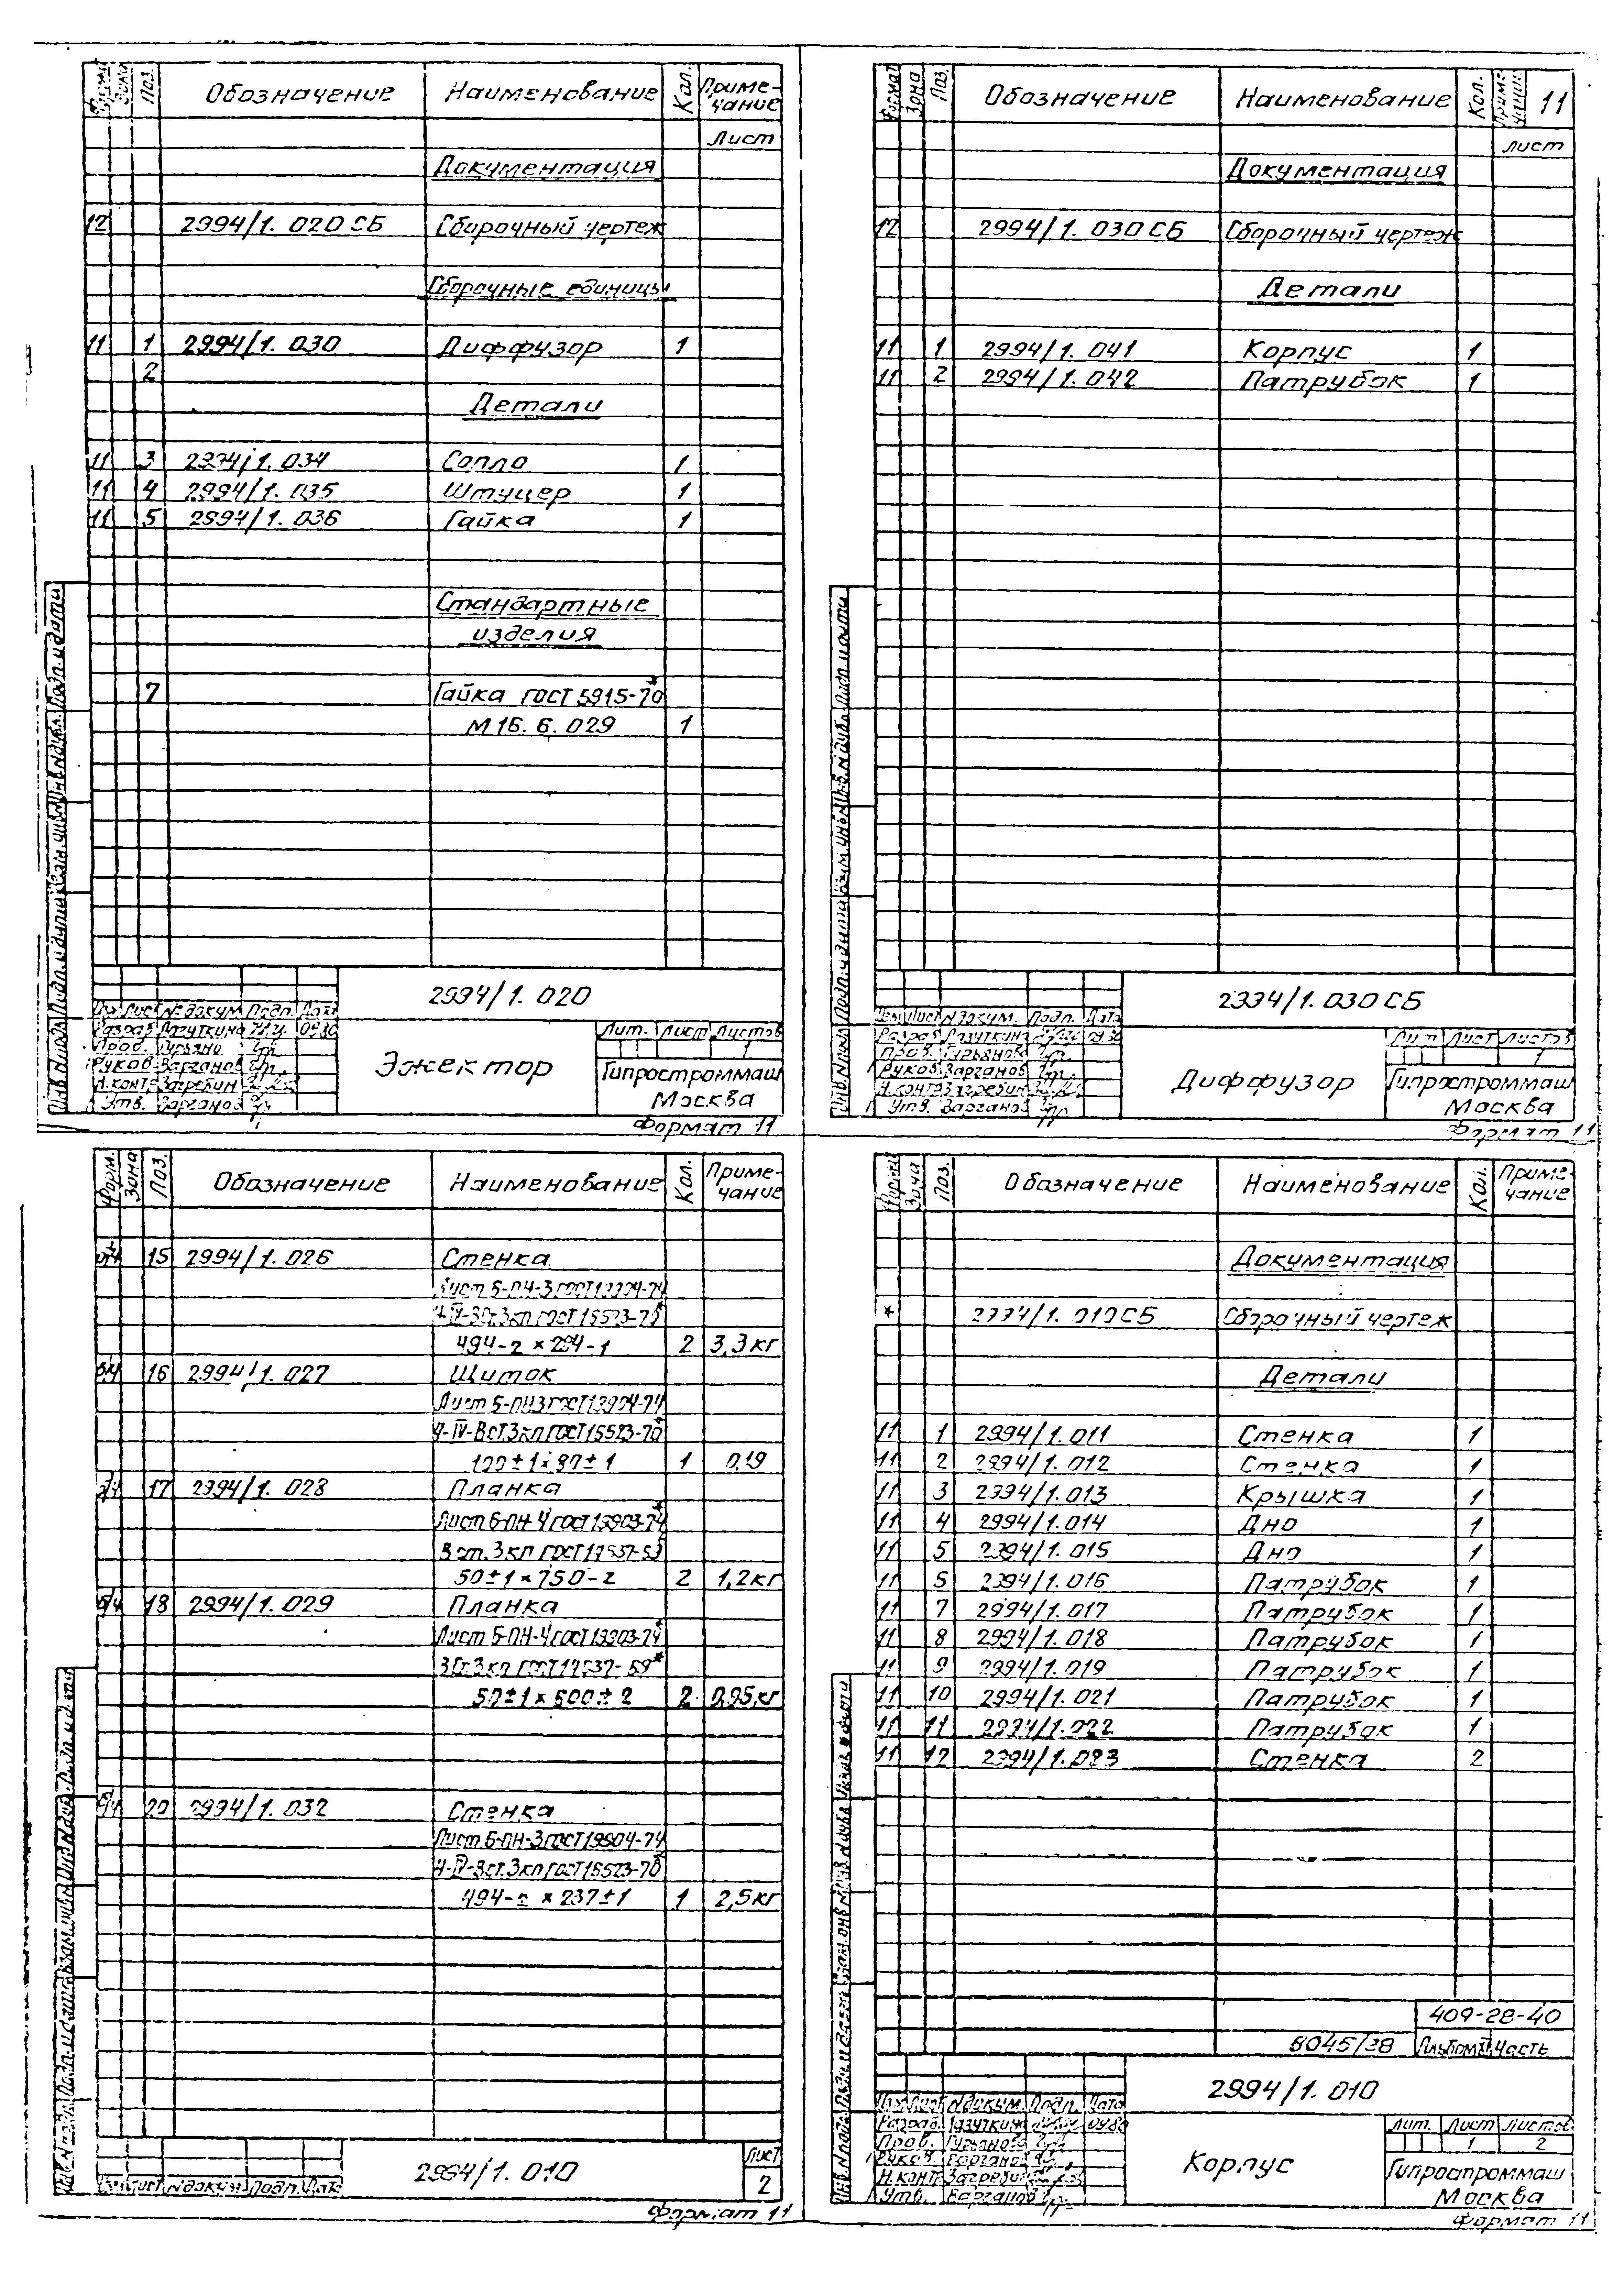 Поз. Обозначение Наименование Кол. Примечание
Лист
Документация
12 2994/1. 020 СБ Сборочный чертеж
Сборочные единицы
11 1 2994/1. 030 Диффузор 1
2
Детали
11 3 2994/1. 034 Сопло 1
11 4 2994/1. 035 Штуцер 1
11 5 2994/1. 036 Гайка 1
Стандартные
изделия
7 Гайка ГОСТ 5915-70*
М16. 6. 029 1
2994/1. 020
Лист № докум. Подп. Дата
Разраб. Лазуткина 09.80
Пров. Гурьянова
Руков. Варганов
Н.контр. Загребин
Утв. Варганов
Эжектор
Лит. Лист Листов
1
Гипростроммаш
Москва
Формат 11
Формат Зона Поз. Обозначение Наименование Кол. Примечание 11
Лист
Документация
12 2994/1. 030 СБ Сборочный чертеж
Детали
11 1 2994/1. 041 Корпус 1
11 2 2994/1. 042 Патрубок 1
2994/1. 030 СБ
Изм. Лист № докум. Подп. Дата
Разраб. Лазуткина
Пров. Гурьянова
Руков. Варганов
Н.контр. Загребин
Утв. Варганов
Диффузор
Лит. Лист Листов
1
Гипростроммаш
Москва
Формат 11
Форм. Зона Поз. Обозначение Наименование Кол. Примечание
б/ч 15 2994/1. 026 Стенка
Лист Б-ПН-3 ГОСТ 19904-74
4-IV-Вст.3кп ГОСТ 16523-70*
494-2 × 294-1 2 3,3 кг
б/ч 16 2994/1. 027 Щиток
Лист Б-ПН3 ГОСТ 19904-74
4-IV-Вст.3кп ГОСТ 16523-70*
100±1×90±1 1 0,19
б/ч 17 2994/1. 028 Планка
Лист Б-ПН-4 ГОСТ 19903-74*
Вст.3кп ГОСТ
50±1×750-2 2 1,2 кг
б/ч 18 2994/1. 029 Планка
Лист Б-ПН-4 ГОСТ 19903-74*
ВСт.3кп ГОСТ 14637-69*
50±1×600±2 2 0,95 кг
б/ч 20 2994/1. 032 Стенка
Лист Б-ПН-3 ГОСТ 19904-74
4-IV-Вст.3кп ГОСТ 16523-70*
494-2 × 237±1 1 2,5 кг
Лист № докум. Подп. Дата
2994/1. 010
Лист
2
Формат 11
Формат Зона Поз. Обозначение Наименование Кол. Примечание
Документация
* 2994/1. 010 СБ Сборочный чертеж
Детали
11 1 2994/1. 011 Стенка 1
11 2 2994/1. 012 Стенка 1
11 3 2994/1. 013 Крышка 1
11 4 2994/1. 014 Дно 1
11 5 2994/1. 015 Дно 1
11 6 2994/1. 016 Патрубок 1
11 7 2994/1. 017 Патрубок 1
11 8 2994/1. 018 Патрубок 1
11 9 2994/1. 019 Патрубок 1
11 10 2994/1. 021 Патрубок 1
11 11 2994/1. 022 Патрубок 1
11 12 2994/1. 023 Стенка 2
409-28-40
8045/38 Альбом Часть
2994/1. 010
Изм. Лист № докум. Подп. Дата
Разраб. Лазуткина
Пров. Гурьянова
Руков. Варганов
Н.контр. Загребин
Утв. Варганов
Корпус
Лит. Лист Листов
1 2
Гипростроммаш
Москва
Формат 11